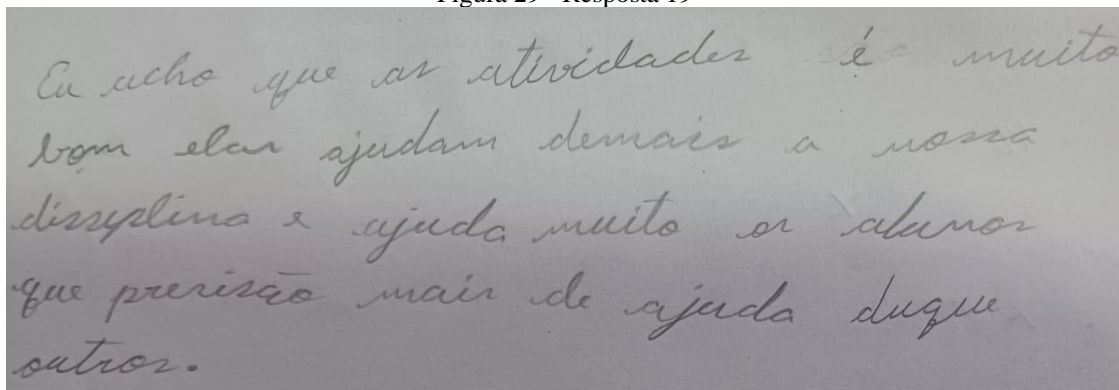 Figura 29 - Resposta 19
Eu acho que as atividades é muito
bom elas ajudam demais a nossa
dissiplina e ajuda muito os alunos
que presisão mais de ajuda duque
outros.